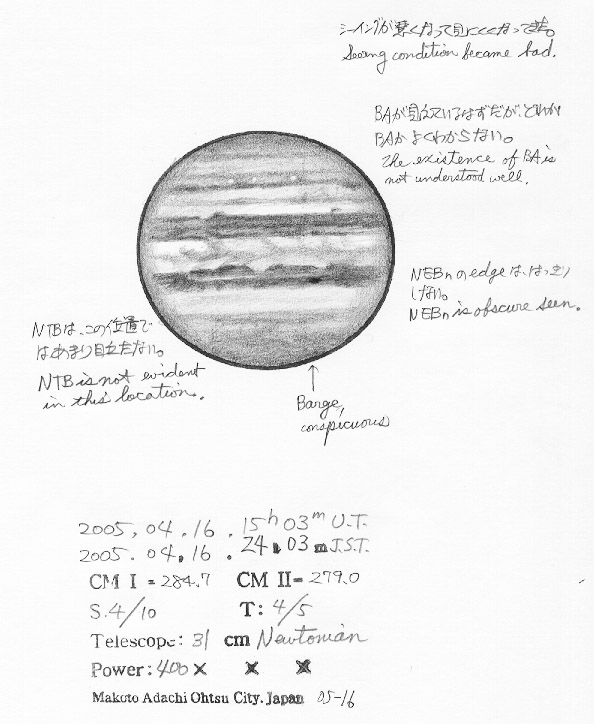 シーイングが悪くなって見にくくなって来た。
Seeing condition became bad.
BAが見えているはずだが、どれが
BAかよくわからない。
The existence of BA is
not understood well.
NEBnのedgeは、はっきり
しない。
NEBn is obscure seen.
NTBは、この位置で
はあまり目立たない。
NTB is not evident
in this location.
Barge,
conspicuous
2005, 04, 16 . 15h 03m U.T.
2005. 04, 16 . 24h 03m J.S.T.
CM I = 284.7 CM II= 279.0
S. 4/10 T: 4/5
Telescope: 31 cm Newtonian
Power: 400 × × ×
Makoto Adachi Ohtsu City. Japan 05-16